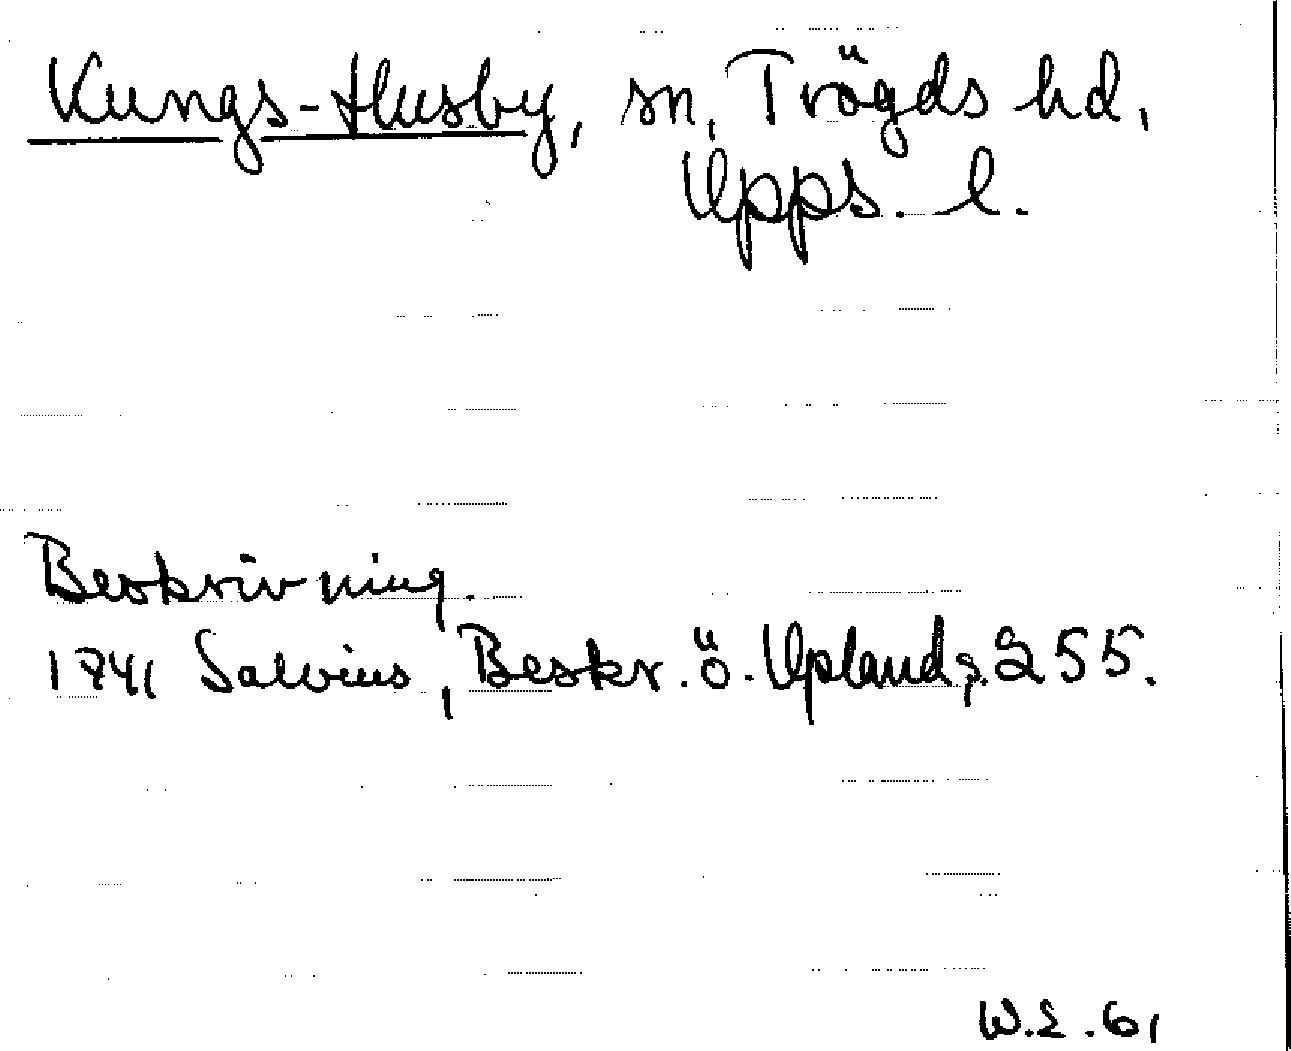 Kungs-Husby, sn, Trögds hd,
Upps. l.
Beskrivning.
1741 Salvius, Beskr. ö. Upland, s. 255.
W.E. 61